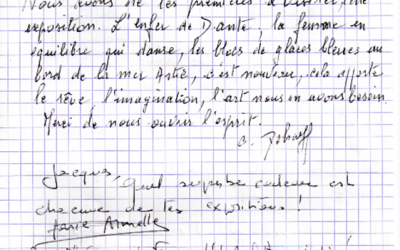 Nous avons été les premières à visiter cette
exposition. L'enfer de Dante, la femme en
équilibre qui danse, les blocs de glaces bleues au
bord de la mer, c'est nouveau, cela apporte
le rêve, l'imagination, l'art nous en avons besoin.
Merci de nous ouvrir l'esprit.
Jacques,
quel superbe cadeau est
chacune de tes expositions !
Armelle